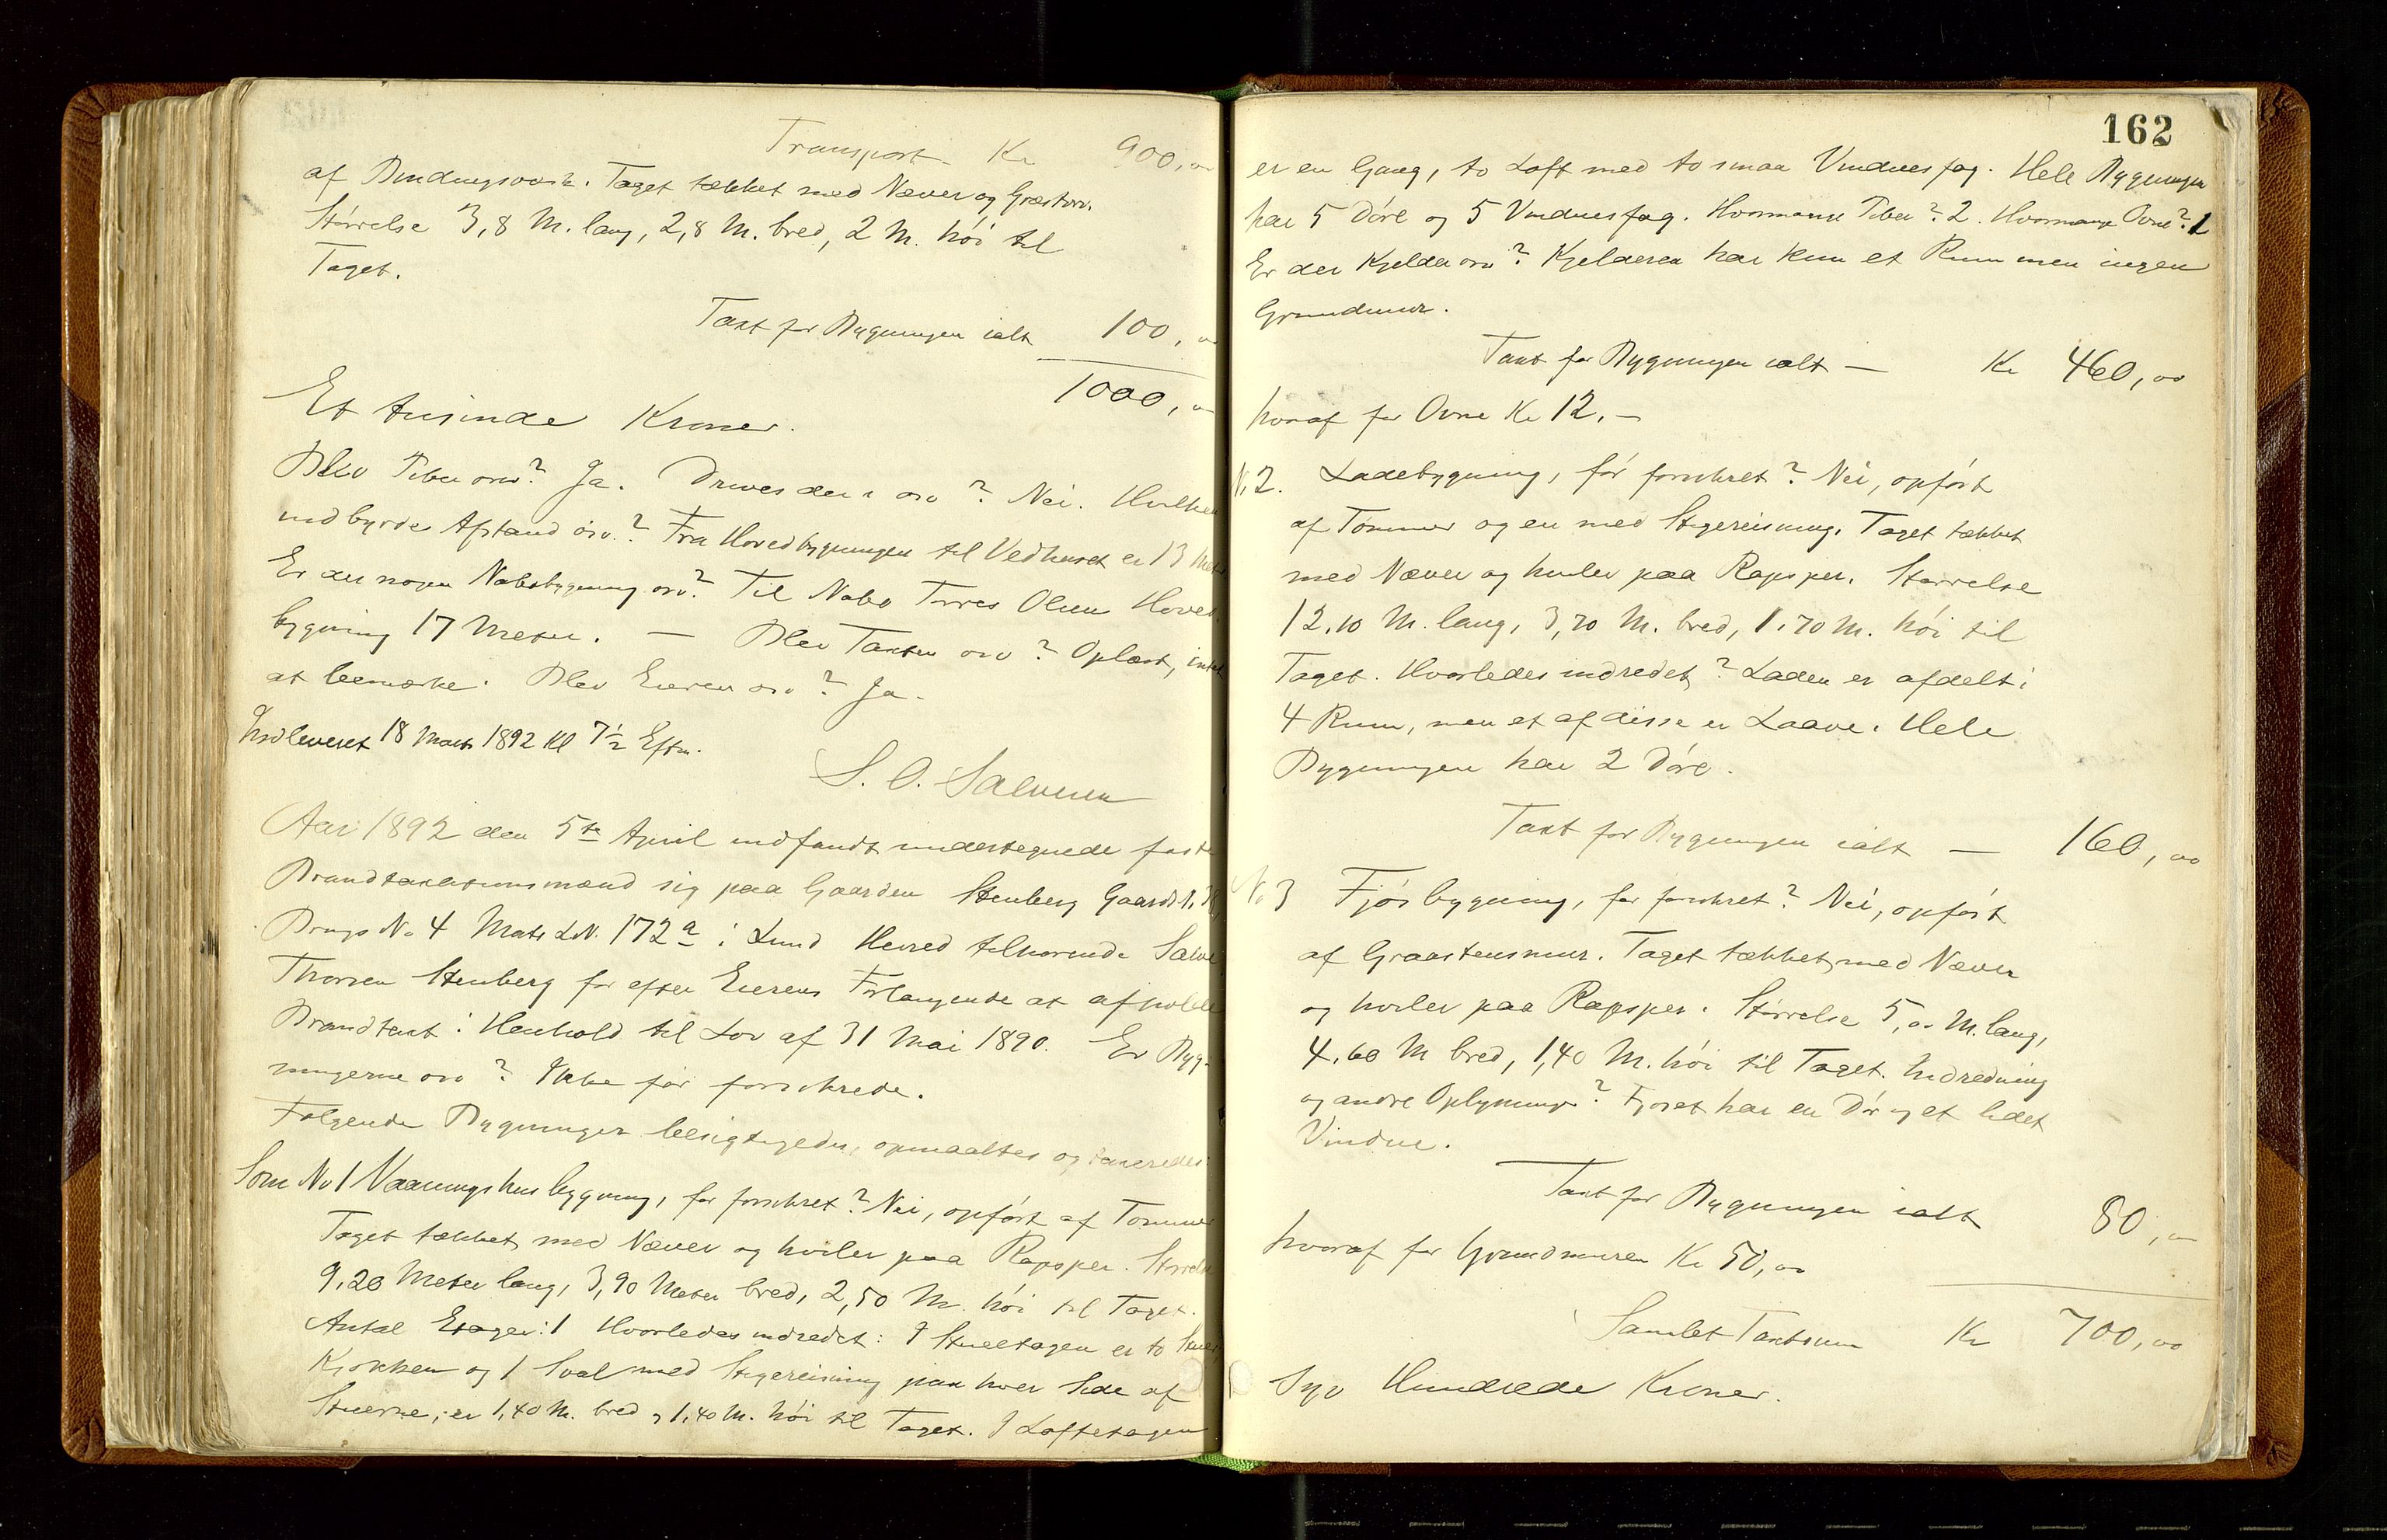 Transport Kr 900,00
af Bindingsværk. Taget tækket med Næver og Græstorv.
Størrelse 3,8 M. lang, 2,8 M. bred, 2 M. høi til
Taget.
Taxt for Bygningen ialt 100,00
1000,00
Et tusinde Kroner.
Blev Piben osv? Ja. Drives der i osv? Nei. Hvilken
indbyrde Afstand osv.? Fra Hovedbygningen til Vedhuset er 13 Met
Er der nogen Nabobygning osv? Til Nabo Torres Olsen Hoved
bygning 17 Meter. — Blev Taxten osv? Oplæst, intet
at bemærke. Blev Eieren osv? Ja.
Indleveret 18 Marts 1892 Kl 7½ Eftm.
S. O. Salvesen
Aar 1892 den 5te April indfandt undertegnede faste
Brandtaxationsmænd sig paa Gaarden Stenberg Gaards N. 38,
Brugs No 4 Matr LN. 172a i Lund Herred tilhørende Salve
Thorsen Stenberg for efter Eierens Forlangende at afholde
Brandtaxt i Henhold til Lov af 31 Mai 1890. Er Byg-
ningerne osv? Ikke før forsikrede.
Følgende Bygninger besigtigedes, opmaaltes og taxeredes:
Som No 1 Vaaningshusbygning, før forsikret? Nei, opført af Tømmer
Taget tækket med Næver og hviler paa Rapsper. Størrelse
9,20 Meter lang, 3,90 Meter bred, 2,50 M. høi til Taget.
Antal Etager: 1 Hvorledes indredet: I Stueetagen er to Stuer,
Kjøkken og 1 Sval med Stegereisning paa hver Side af
Stuerne; er 1,40 M. bred og 1,40 M. høi til Taget. I Loftetagen
162
er en Gang, to Loft med to smaa Vinduesfag. Hele Bygningen
har 5 Døre og 5 Vinduesfag. Hvormange Piber? 2. Hvormange Ovne? 1
Er der Kjelder osv? Kjelderen har kun et Rum men ingen
Grundmur.
Taxt for Bygningen ialt — Kr 460,00
hvoraf for Ovne Kr 12. —
N. 2. Ladebygning, før forsikret? Nei, opført
af Tømmer og en med Stegereisning. Taget tækket
med Næver og hviler paa Rapsper. Størrelse
12,10 M. lang, 3,70 M. bred, 1,70 M. høi til
Taget. Hvorledes indredet? Laden er afdelt i
4 Rum, men et af disse er Laave. Hele
Bygningen har 2 Døre.
Taxt for Bygningen ialt — 160,00
No 3 Fjøsbygning, før forsikret? Nei, opført
af Graastensmur. Taget tækket med Næver
og hviler paa Rapsper. Størrelse 5,00 M. lang,
4,60 M bred, 1,40 M. høi til Taget. Indredning
og andre Oplysninger? Fjøset har en Dør og et lidet
Vindue.
Taxt for Bygningen ialt 80,00
hvoraf for Grundmuren Kr 50,00
Samlet Taxtsum Kr 700,00
Syv Hundrede Kroner.